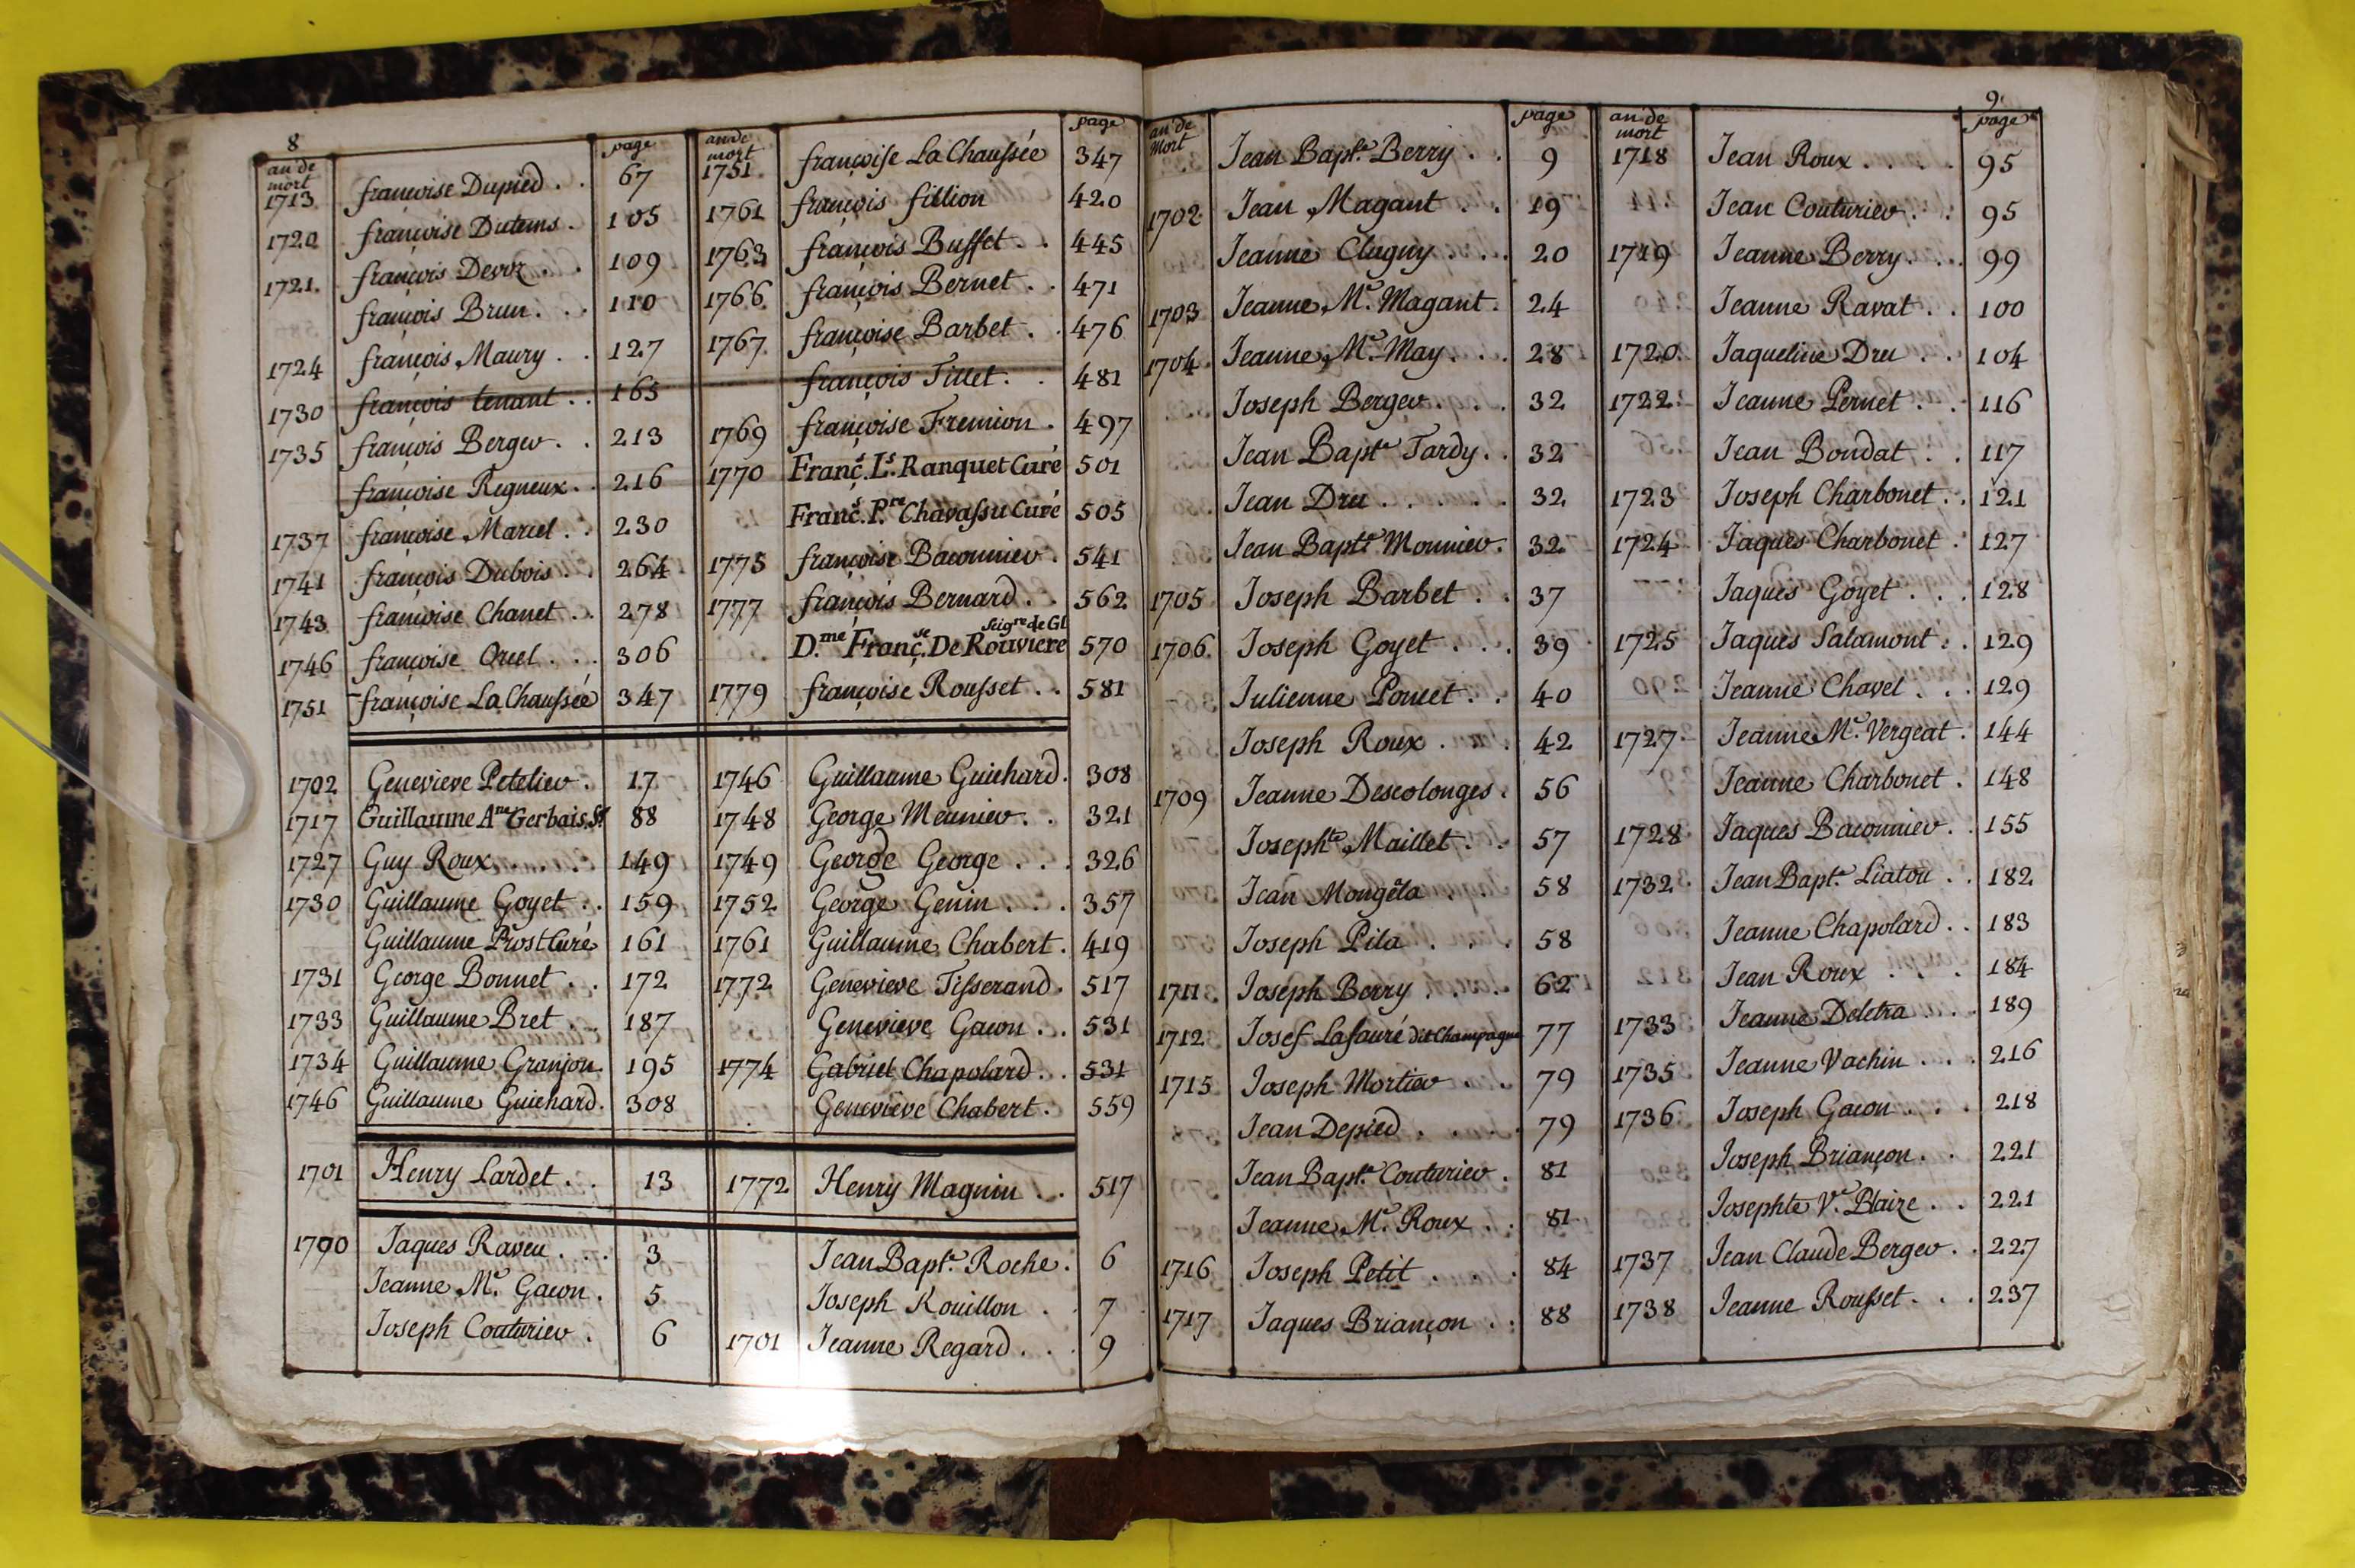 8
an de mort page
1713 françoise Dupied . . 67
1720 françoise Dutems . 105
1721 françois Devoz . . 109
françois Brun . . . 110
1724 françois Maury . . 127
1730 françois tenant . . 165
1735 françois Berger . . 213
françoise Regneux . . 216
1737 françoise Marcel . . 230
1741 françois Dubois . . 264
1743 françoise Chanet . . 278
1746 françoise Orcel . . . 306
1751 françoise La Chaussée 347
1702 Genevieve Petelier . 17
1717 Guillaume Ame Gerbais Sr 88
1727 Guy Roux . . . . 149
1730 Guillaume Goyet . . 159
Guillaume Prost Curé 161
1731 George Bonnet . . 172
1733 Guillaume Bret . . 187
1734 Guillaume Granjon . 195
1746 Guillaume Guichard . 308
1701 Henry Lardet . . 13
1700 Jaques Raveu . . . 3
Jeanne Me. Gacon . 5
Joseph Couturier . 6
an de mort page
1751 françoise La Chaussée 347
1761 françois fillion 420
1763 françois Buffet . . 445
1766 françois Bernet . . 471
1767 françoise Barbet . . 476
françois Tillet . . 481
1769 françoise Fremion . 497
1770 Franç.s L.s Ranquet Curé 501
Franç.s P.re Chavassu Curé 505
1775 françoise Baconnier . 541
1777 françois Bernard . . 562
seigre de Gl
D.me Franç.se De Rouviere 570
1779 françoise Rousset . . 581
1746 Guillaume Guichard . 308
1748 George Meunier . . 321
1749 George George . . . 326
1752 George Genin . . . 357
1761 Guillaume Chabert . 419
1772 Genevieve Tisserand . 517
Genevieve Gacon . . 531
1774 Gabriel Chapolard . . 531
Genevieve Chabert . 559
1772 Henry Magnin . . 517
Jean Bapt.e Roche . 6
Joseph Rouillon . 7
1701 Jeanne Regard . . . 9
9
an de Mort page
Jean Bapt.e Berry . . 9
1702 Jean Magant . . 19
Jeanne Clugny . . . 20
1703 Jeanne Me. Magant . 24
1704 Jeanne Me. May . . . 28
Joseph Berger . . . 32
Jean Bapt.e Tardy . . 32
Jean Dru . . . . . . 32
Jean Bapt.e Monnier . 32
1705 Joseph Barbet . . 37
1706 Joseph Goyet . . . 39
Julienne Poncet . . 40
Joseph Roux . . . 42
1709 Jeanne Descolonges . 56
Josephte Maillet . . 57
Jean Mongela . . 58
Joseph Pila . . . 58
1711 Joseph Berry . . . 62
1712 Josef Lafauré dit Champagne 77
1715 Joseph Mortier . . 79
Jean Depied . . . . 79
Jean Bapt.e Couturier . 81
Jeanne Me. Roux . . 81
1716 Joseph Petit . . . 84
1717 Jaques Briançon . . 88
an de mort page
1718 Jean Roux . . . . 95
Jean Couturier . . 95
1719 Jeanne Berry . . . 99
Jeanne Ravat . . 100
1720 Jaqueline Dru . . 104
1722 Jeanne Pernet . . 116
Jean Boudat . . 117
1723 Joseph Charbonet . . 121
1724 Jaques Charbonet . 127
Jaques Goyet . . . 128
1725 Jaques Salamont . . 129
Jeanne Chavel . . . 129
1727 Jeanne Me. Vergeat . 144
Jeanne Charbonet . 148
1728 Jaques Baconnier . . 155
1732 Jean Bapt.e Liatou . . 182
Jeanne Chapolard . . 183
Jean Roux . . . 184
1733 Jeanne Deletra . . . 189
1735 Jeanne Vachin . . . 216
1736 Joseph Gacon . . . 218
Joseph Briançon . . 221
Josephte Ve. Blaize . . 221
1737 Jean Claude Berger . . 227
1738 Jeanne Rousset . . . 237